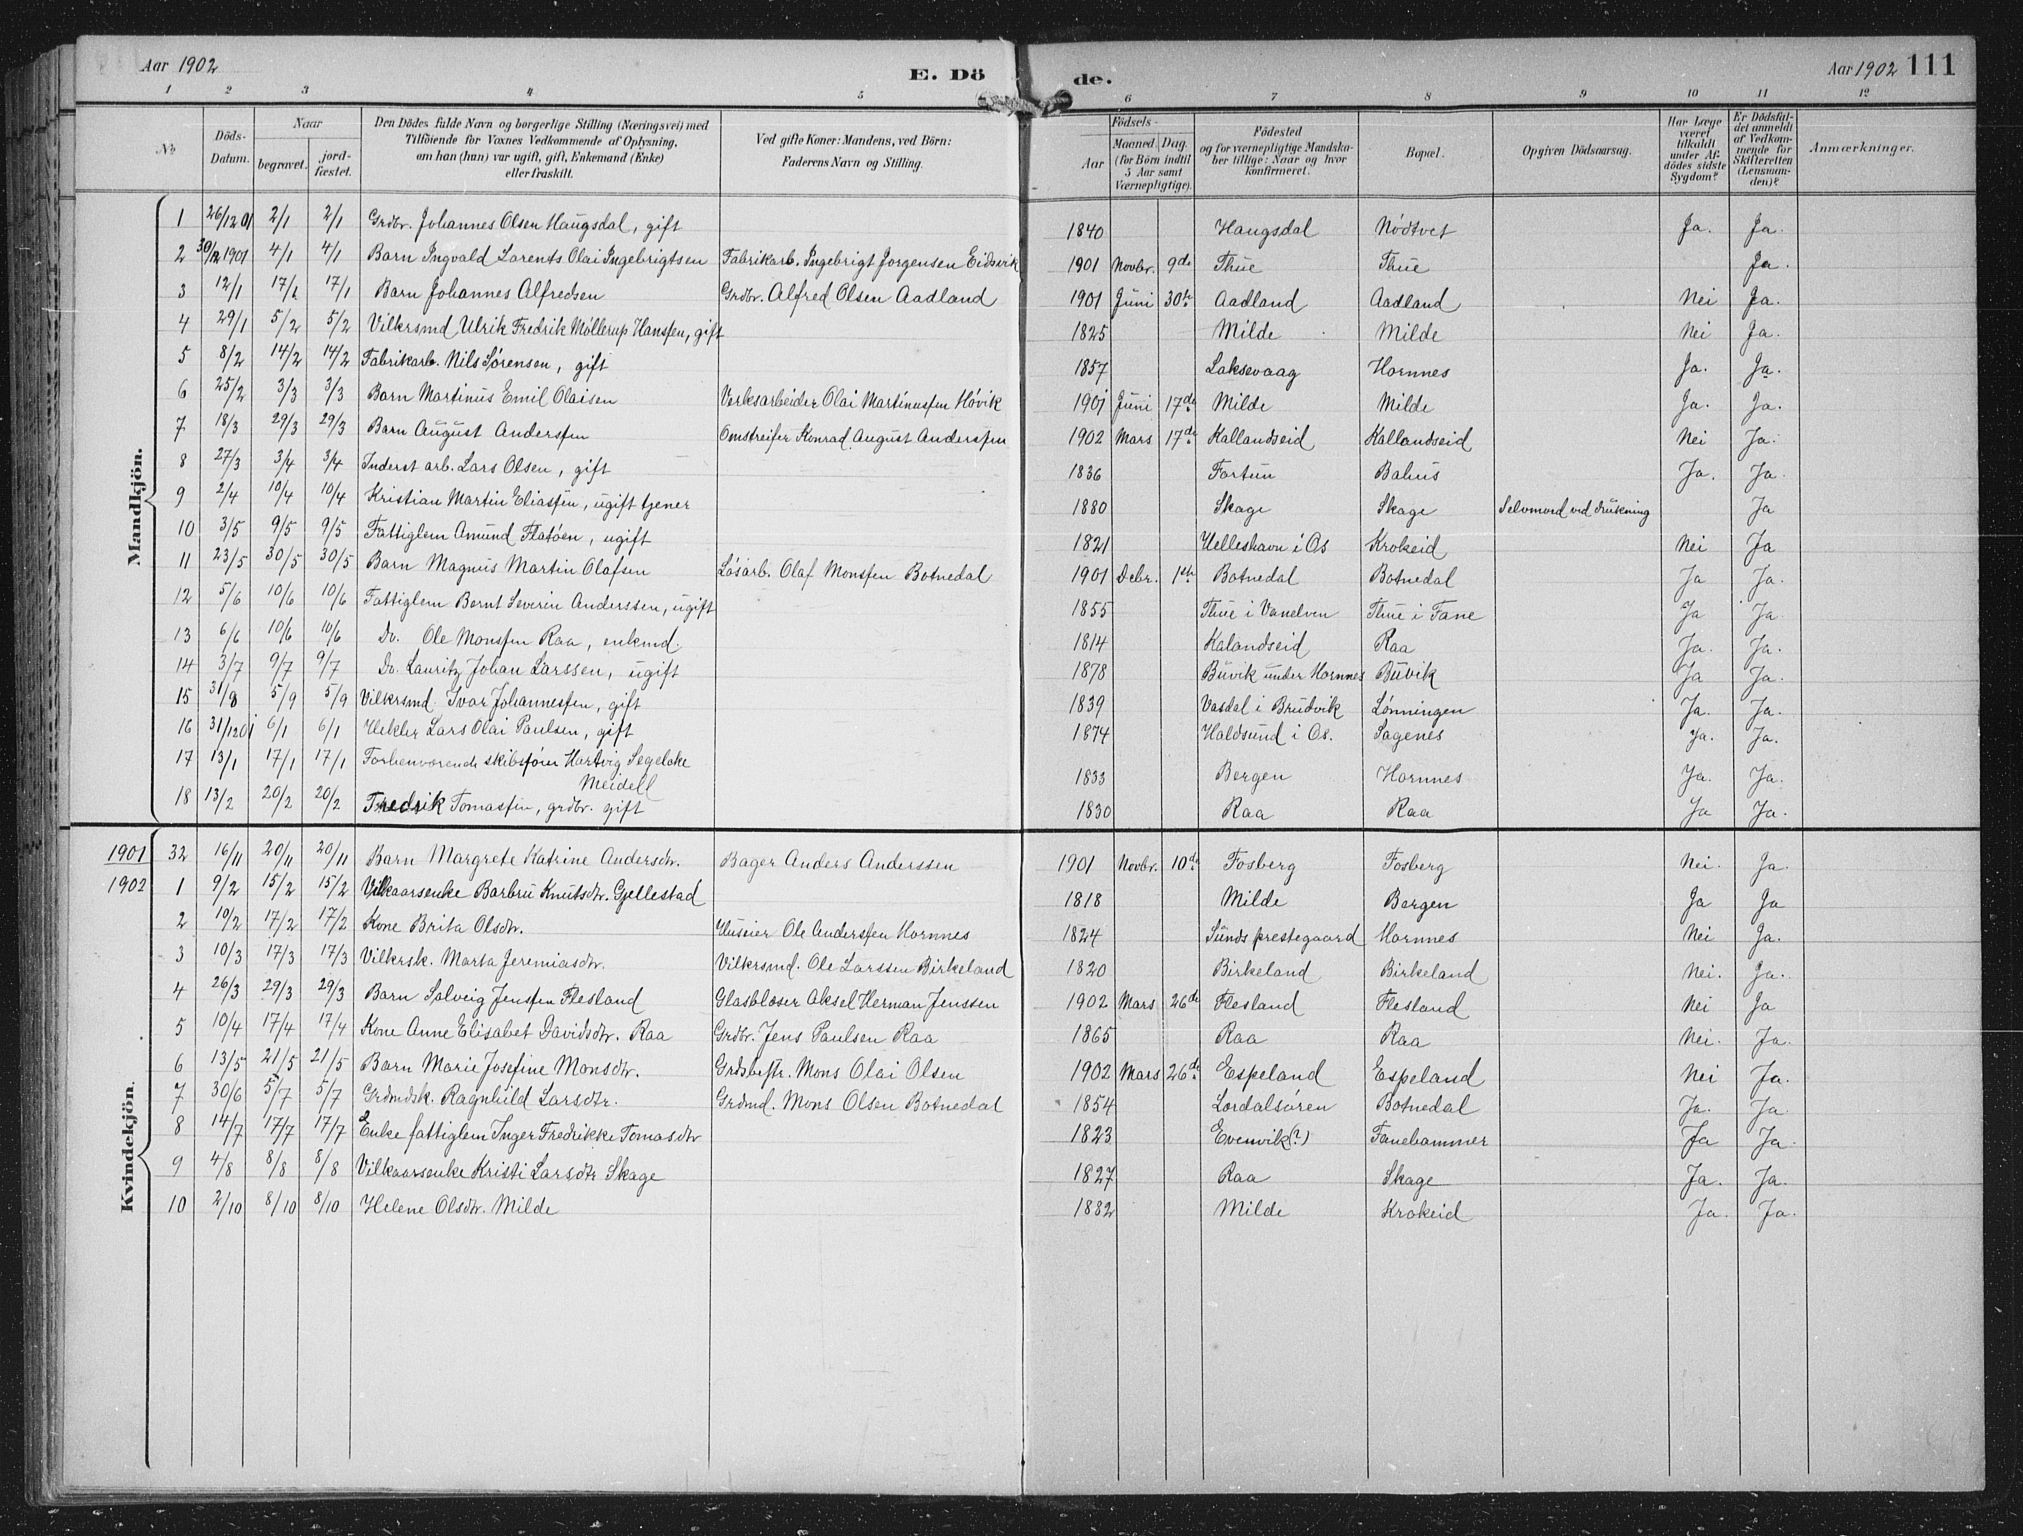 Aar 1902 E. Dö de. Aar 1902 111
1 2 3 4 5 6 7 8 9 10 11 12
No. Döds-Datum. Naar begravet. jord-fæstet. Den Dödes fulde Navn og borgerlige Stilling (Næringsvei) med Tilföiende for Voxnes Vedkommende af Oplysning, om han (hun) var ugift, gift, Enkemand (Enke) eller fraskilt. Ved gifte Koner: Mandens, ved Börn: Faderens Navn og Stilling. Födsels- Aar Maaned. Dag. (for Börn indtil 5 Aar samt Værnepligtige). Födested og for værnepligtige Mandskaber tillige: Naar og hvor konfirmeret. Bopæl. Opgiven Dödsaarsag. Har Læge været tilkaldt under Afdödes sidste Sygdom? Er Dödsfaldet anmeldt af Vedkommende for Skifteretten (Lensmanden)? Anmærkninger.
Mandkjön.
1 26/12 01 2/1 2/1 Grdbr. Johannes Olsen Haugsdal, gift 1840 Haugsdal Nødtvet Ja. Ja.
2 30/12 1901 4/1 4/1 Barn Ingvald Lorents Olai Ingebrigtsen Fabrikarb. Ingebrigt Jorgensen Eidsvik 1901 Novbr. 9de Thue Thue Ja.
3 12/1 17/1 17/1 Barn Johannes Alfredsen Grdbr. Alfred Olsen Aadland 1901 Juni 30te Aadland Aadland Nei Ja.
4 29/1 5/2 5/2 Vilkrsmd Ulrik Fredrik Møllerup Hanssen, gift 1825 Milde Milde Nei Ja.
5 8/2 14/2 14/2 Fabrikarb. Nils Sørensen, gift 1857 Laksevaag Hornnes Ja. Ja.
6 25/2 3/3 3/3 Barn Martinus Emil Olaisen Verksarbeider Olai Martinussen Hövik 1901 Juni 17de Milde Milde Ja. Ja.
7 18/3 29/3 29/3 Barn August Anderssen Omstreifer Konrad August Anderssen 1902 Mars 17de Kallandseid Kallandseid Nei Ja.
8 27/3 3/4 3/4 Inderst arb. Lars Olsen, gift 1836 Fortun Bahus Ja. Ja.
9 2/4 10/4 10/4 Kristian Martin Eliassen, ugift tjener 1880 Skage Skage Selvmord ved drukning Ja
10 3/5 9/5 9/5 Fattiglem Amund Flatöen, ugift 1821 Helleshavn i Os Krokeid Nei Ja
11 23/5 30/5 30/5 Barn Magnus Martin Olafsen Løsarb. Olaf Monssen Botnedal 1901 Debr. 1ste Botnedal Botnedal Ja Ja.
12 5/6 10/6 10/6 Fattiglem Bernt Severin Anderssen, ugift 1855 Thue i Vanelven Thue i Fane Ja Ja.
13 6/6 10/6 10/6 Do. Ole Monssen Raa, enkmd. 1814 Kalandseid Raa Ja. Ja.
14 3/7 9/7 9/7 Do. Lauritz Johan Larssen, ugift 1878 Buvik under Hornnes Buvik Ja Ja.
15 31/8 5/9 5/9 Vilkrsmd. Ivar Johannessen, gift 1839 Vasdal i Brudvik Lønningen Ja. Ja.
16 31/12 01 6/1 6/1 Hekler Lars Olai Paulsen, gift 1874 Holdsund i Os. Sagenes Ja. Ja.
17 13/1 17/1 17/1 Forhenværende skibsfører Hartvig Segelcke
Meidell 1833 Bergen Hornnes Ja. Ja.
18 13/2 20/2 20/2 Fredrik Tomassen, grdbr. gift 1830 Raa Raa Ja Ja.
Kvindekjön.
1901 32 16/11 20/11 20/11 Barn Margrete Katrine Andersdtr. Bager Anders Anderssen 1901 Novbr. 10de Fosberg Fosberg Nei. Ja.
1902 1 9/2 15/2 15/2 Vilkaarsenke Barbru Knutsdtr. Gjellestad 1818 Milde Bergen Ja Ja
2 10/2 17/2 17/2 Kone Brita Olsdtr. Husier Ole Anderssen Hornnes 1824 Sunds prestegaard Hornnes Nei Ja.
3 10/3 17/3 17/3 Vilkrsk. Marta Jeremiasdtr. Vilkrsmd. Ole Larssen Birkeland 1820 Birkeland Birkeland Nei. Ja.
4 26/3 29/3 29/3 Barn Solveig Jenssen Flesland Glasblæser Aksel Herman Jenssen 1902 Mars 26de Flesland Flesland Nei Ja
5 10/4 17/4 17/4 Kone Anne Elisabet Davidsdtr. Raa Grdbr. Jens Paulsen Raa 1865 Raa Raa Nei. Ja.
6 13/5 21/5 21/5 Barn Marie Josefine Monsdtr. Grdsbestr. Mons Olai Olsen 1902 Mars 26de Espeland Espeland Nei Ja.
7 30/6 5/7 5/7 Grdmdsk. Ragnhild Larsdtr. Grdmd. Mons Olsen Botnedal 1854 Lordalsören Botnedal Ja. Ja.
8 14/7 17/7 17/7 Enke fattiglem Inger Fredrikke Tomasdtr 1823 Evenvik (?) Fanehammer Ja Ja.
9 4/8 8/8 8/8 Vilkaarsenke Kristi Larsdtr Skage 1827 Raa Skage Ja. Ja.
10 2/10 8/10 8/10 Helene Olsdtr. Milde 1832 Milde Krokeid Ja. Ja.